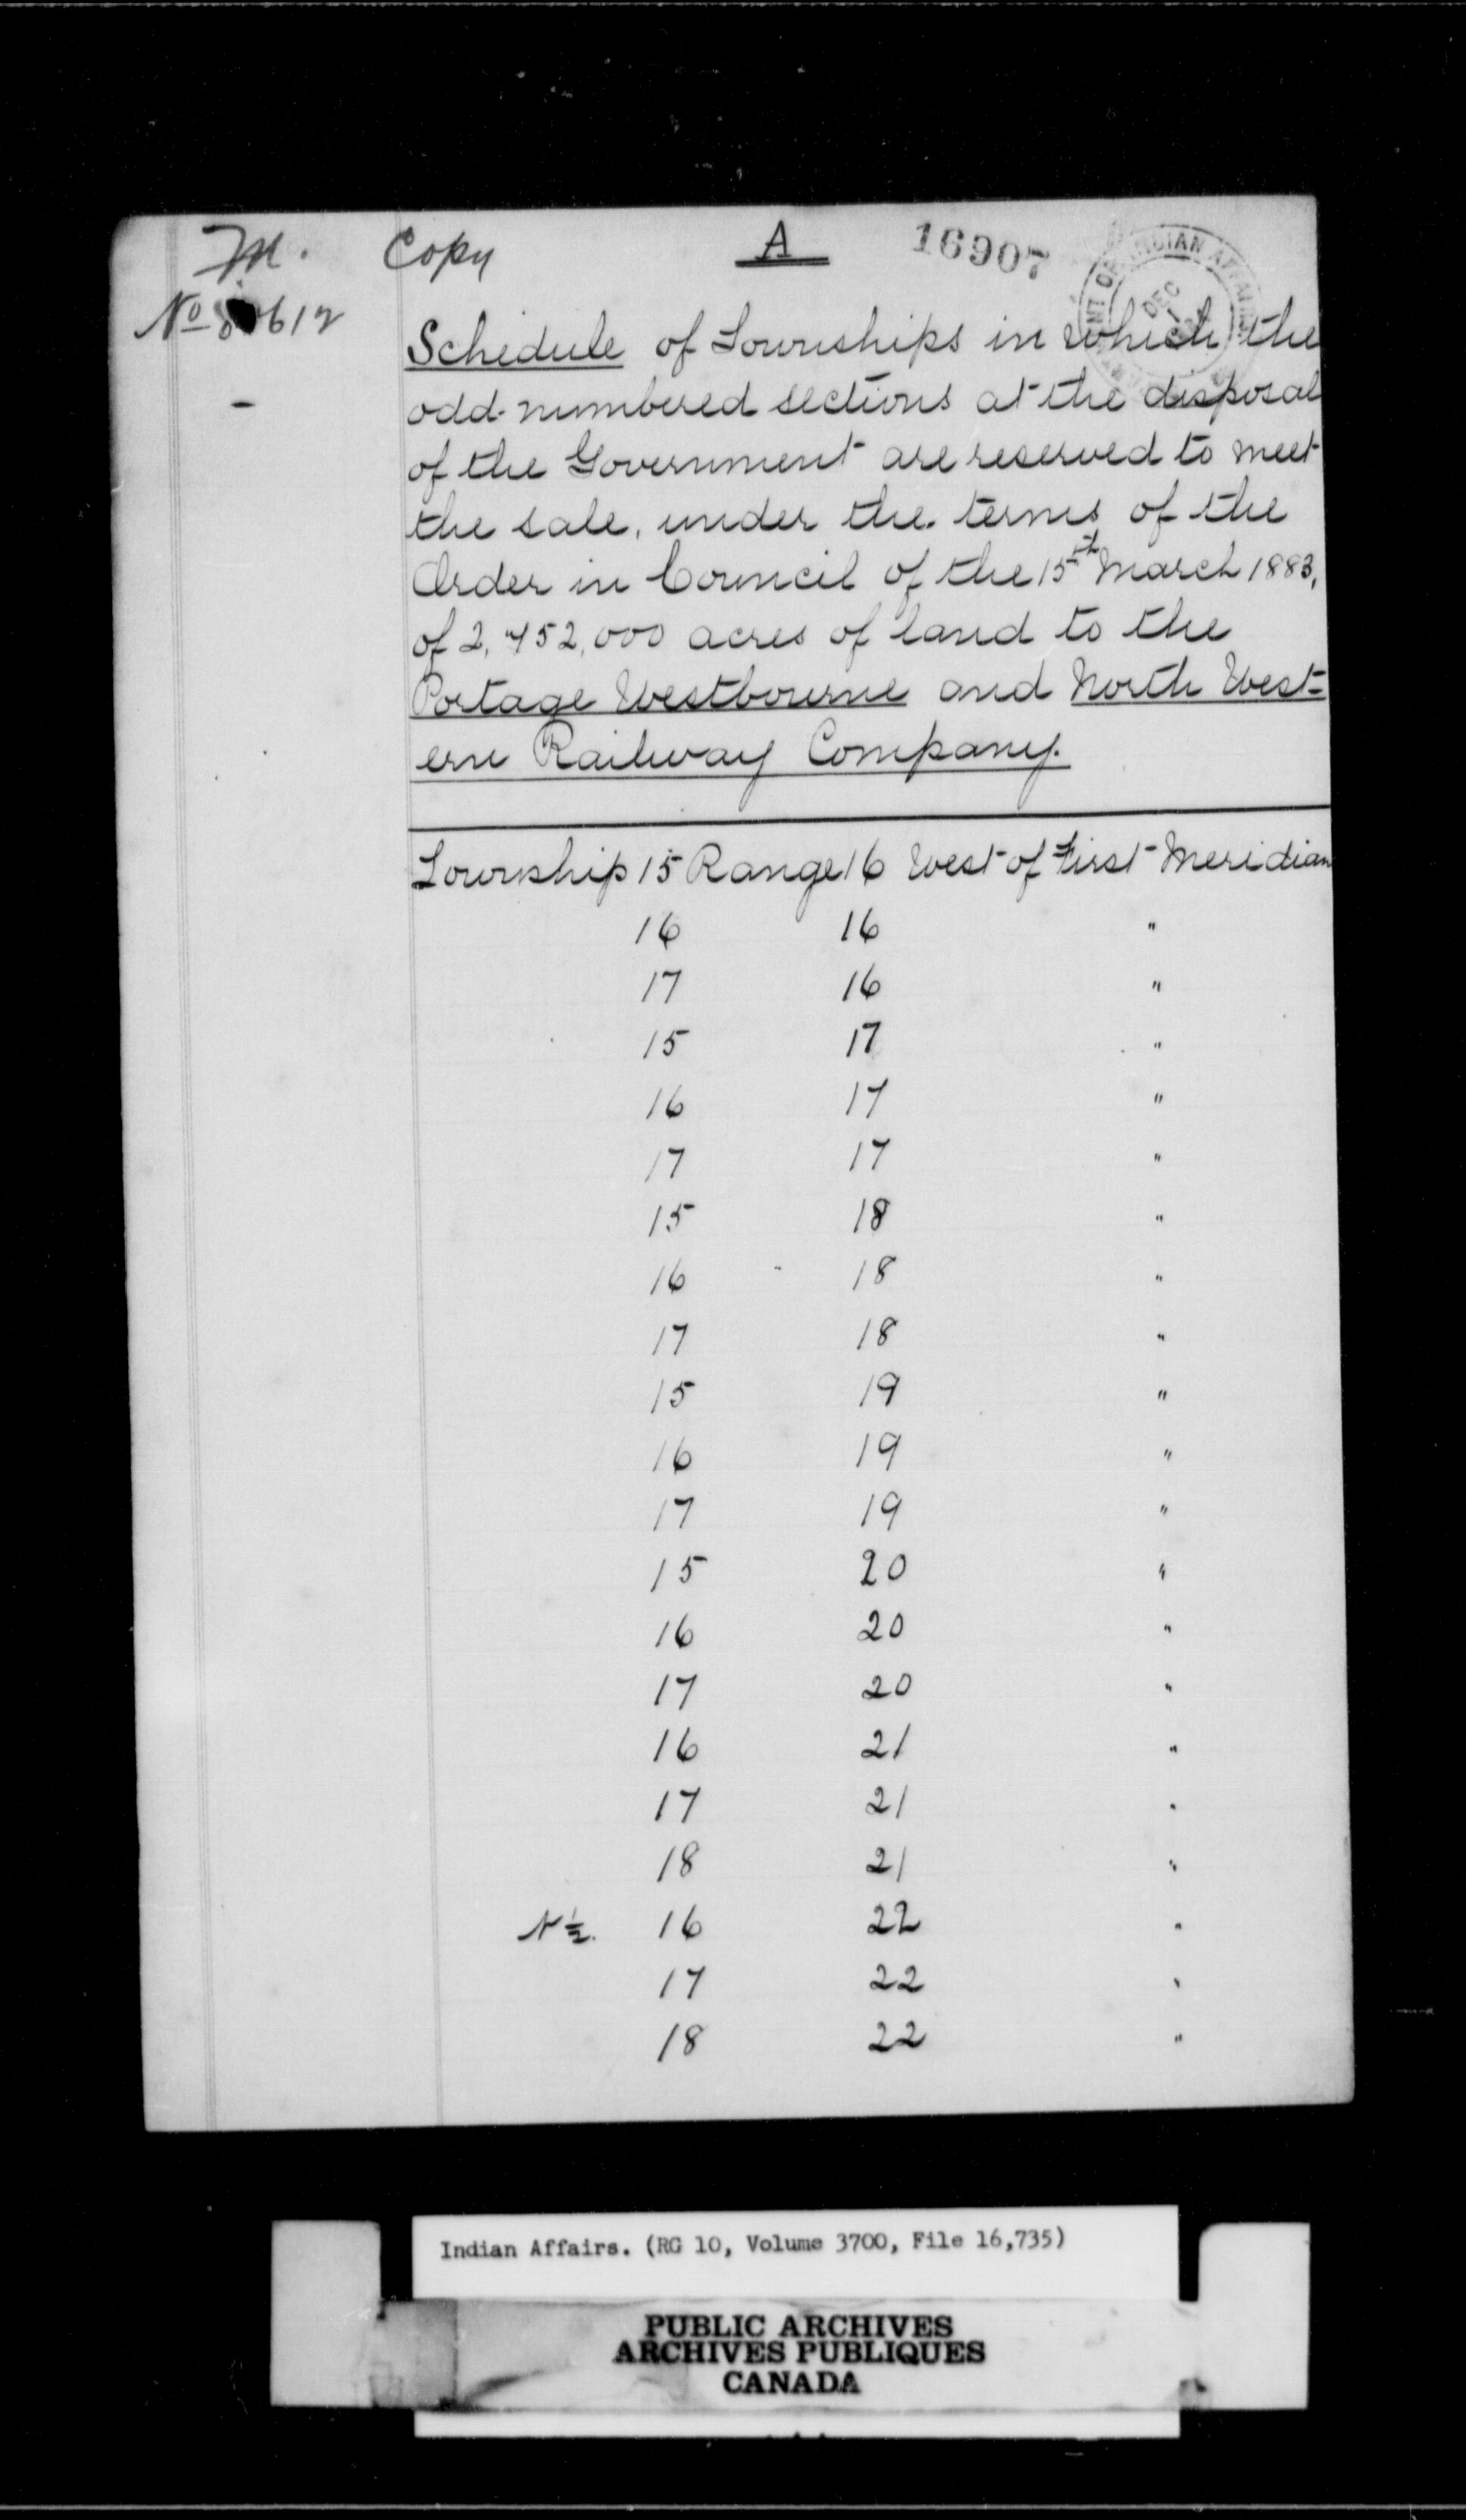 M. Copy A 16907
No
DEPARTMENT OF INDIAN AFFAIRS
DEC
Schedule of Townships in which the
odd-numbered sections at the disposal
of the Government are reserved to meet
the sale, under the terms of the
Order in Council of the 15th March 1883,
of 2,752,000 acres of land to the
Portage Westbourne and North West-
ern Railway Company.
Township 15 Range 16 West of First Meridian
16 16 "
17 16 "
15 17 "
16 17 "
17 17 "
15 18 "
16 18 "
17 18 "
15 19 "
16 19 "
17 19 "
15 20 "
16 20 "
17 20 "
16 21 "
17 21 "
18 21 "
N ½. 16 22 "
17 22 "
18 22 "
Indian Affairs. (RG 10, Volume 3700, File 16,735)
PUBLIC ARCHIVES
ARCHIVES PUBLIQUES
CANADA